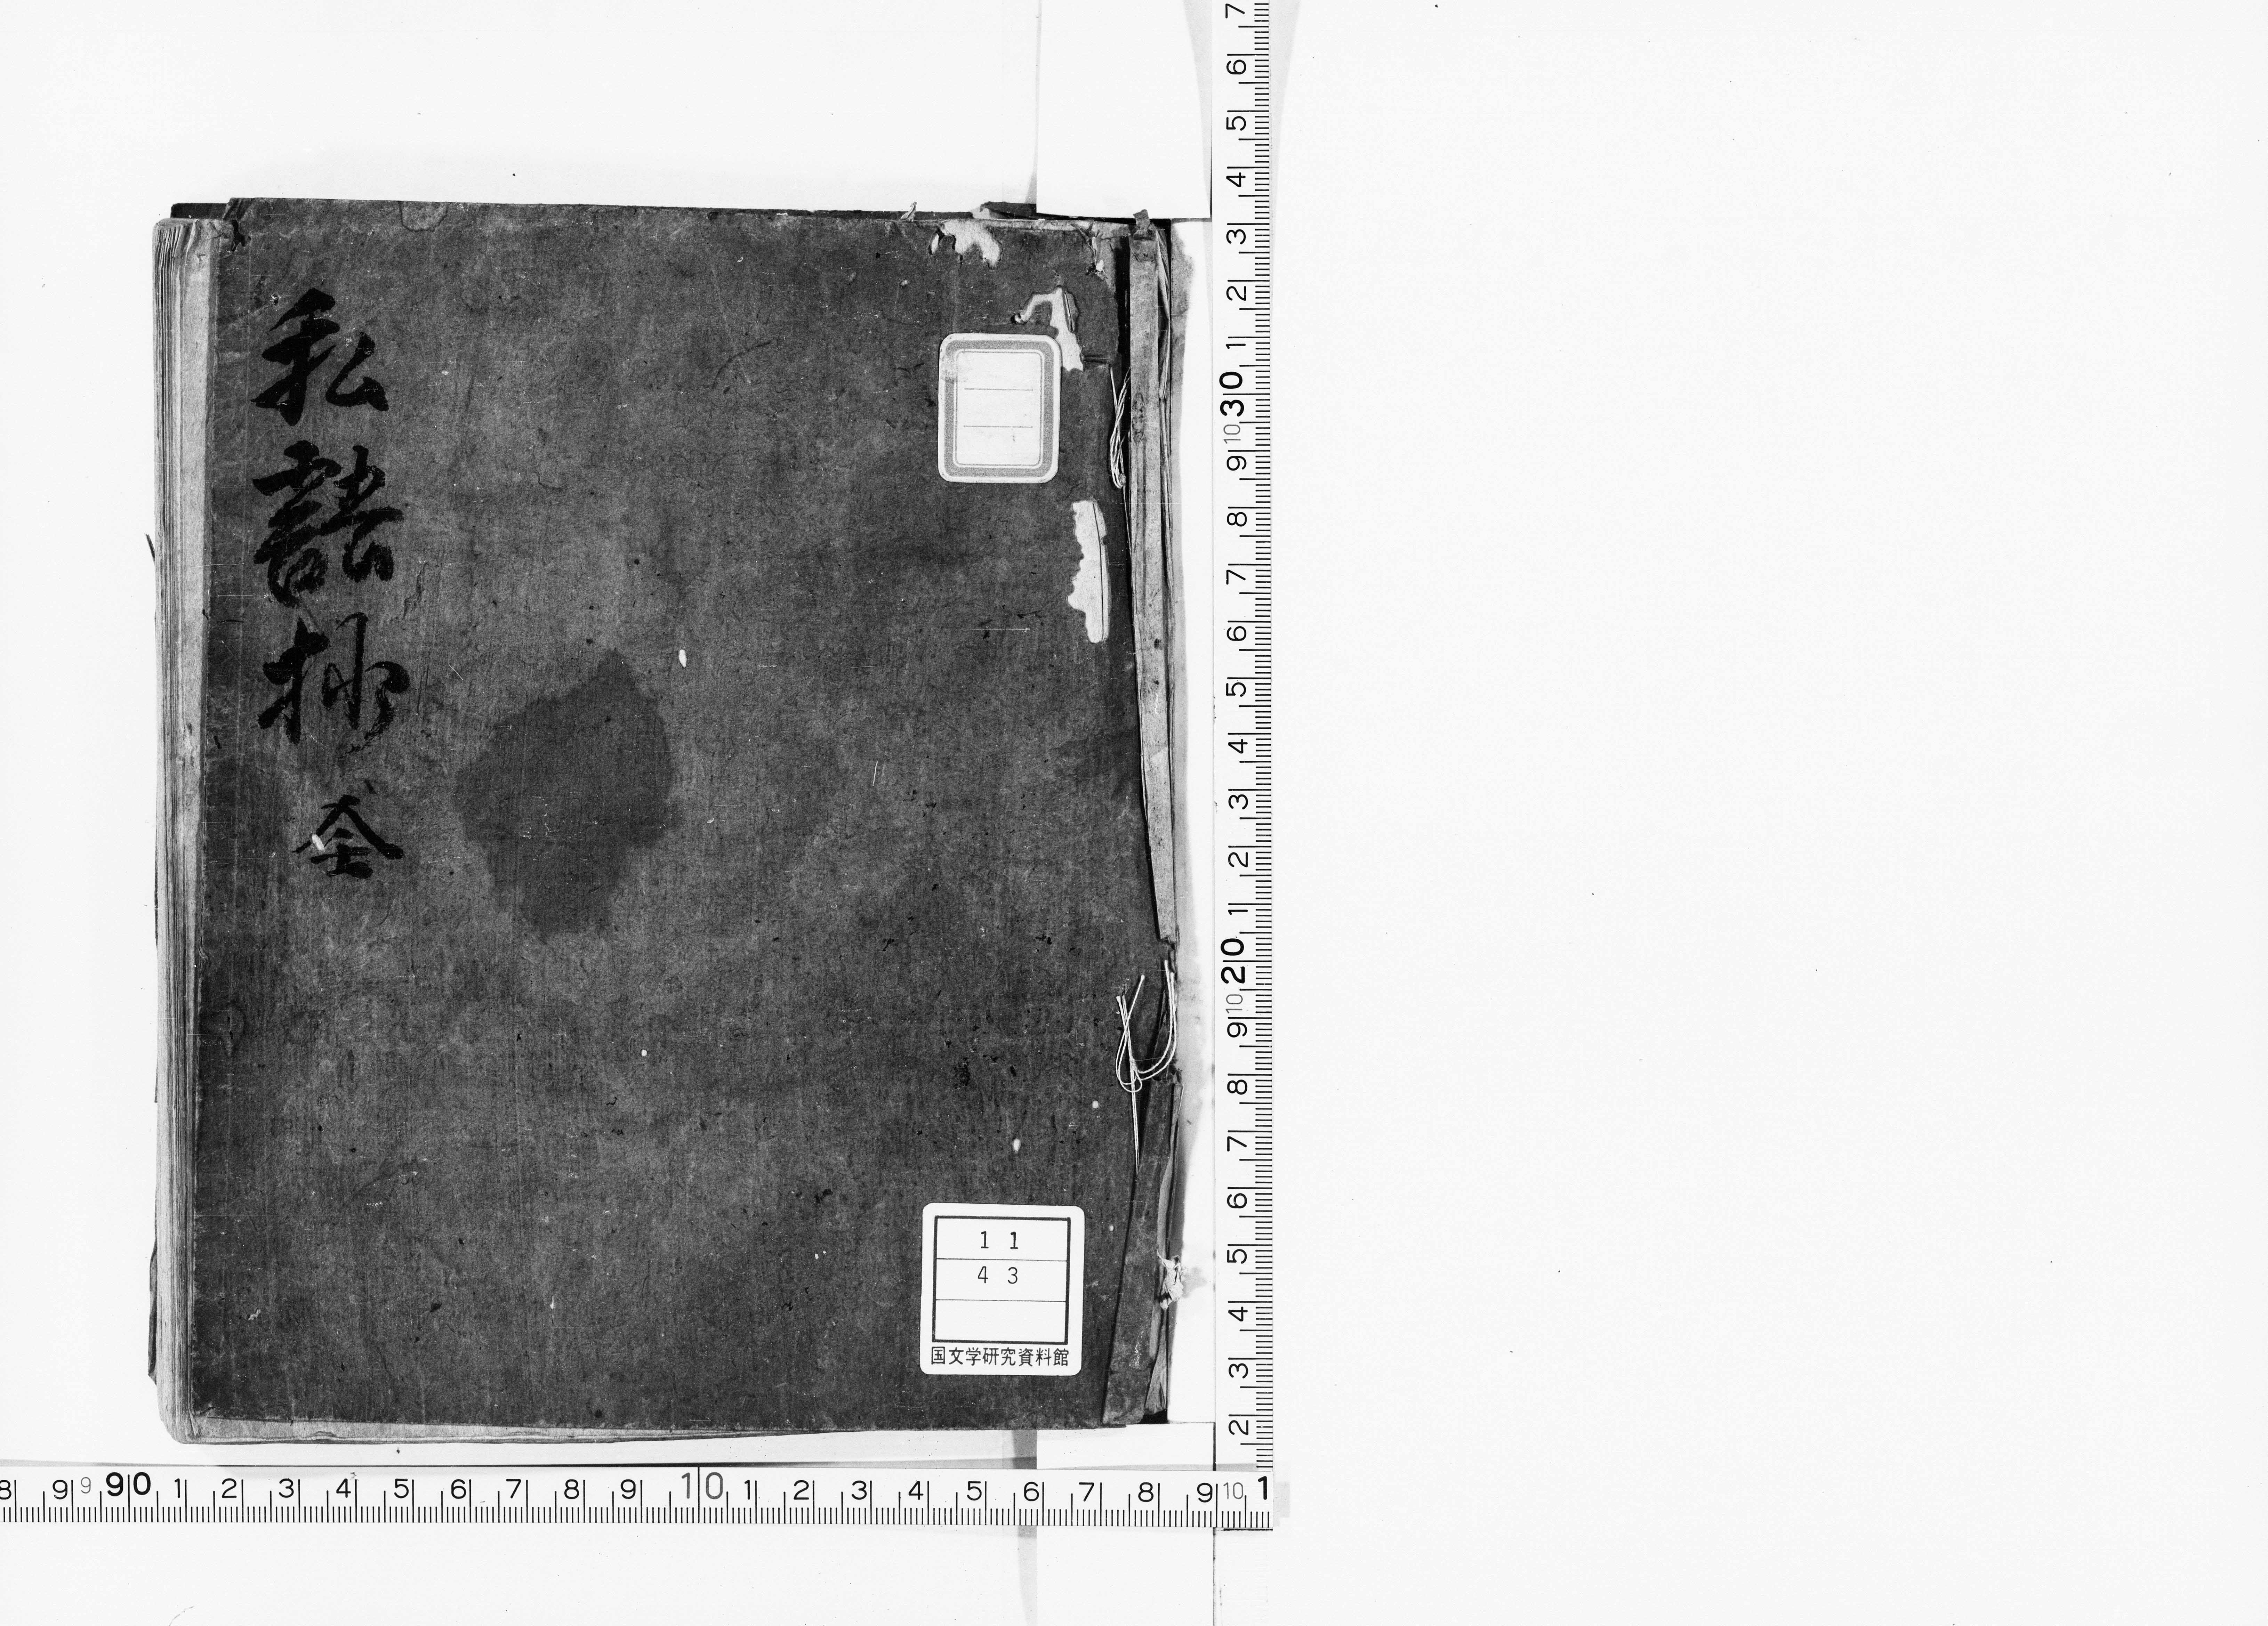 私語抄 全
11
43
国文学研究資料館
7 6 5 4 3 2 1 30 10 9 8 7 6 5 4 3 2 1 20 10 9 8 7 6 5 4 3 2
8 9 9 90 1 2 3 4 5 6 7 8 9 10 1 2 3 4 5 6 7 8 9 10 1